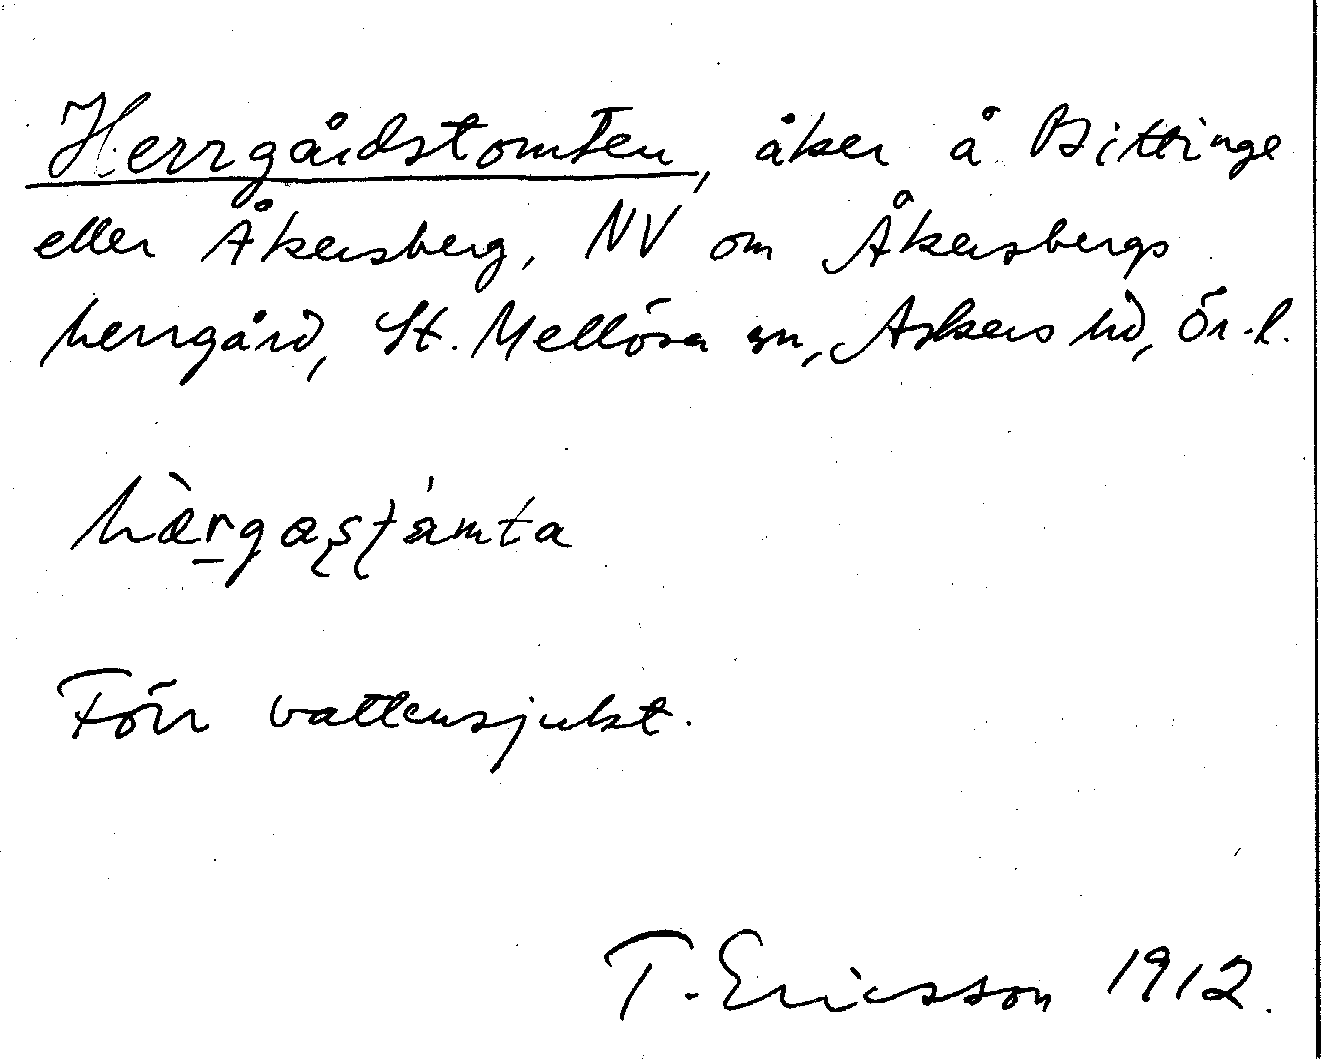 Herrgårdstomten, åker å Bittinge
eller Åkersberg, NV om Åkersbergs
herrgård, St. Mellösa sn, Askers hd, Ör. l.
Förr vattensjukt.
T. Ericsson 1912.